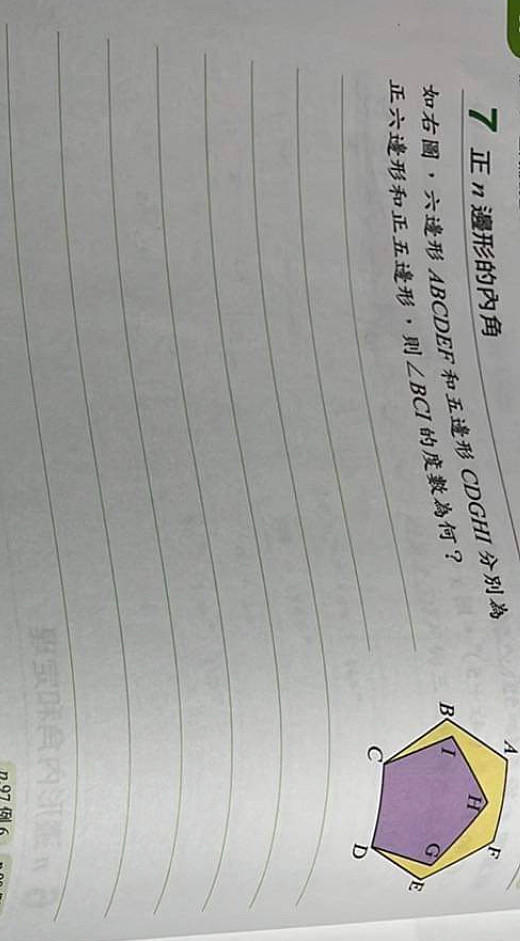 7 正 n 邊形的內角
如右圖，六邊形 ABCDEF 和五邊形 CDGHI 分別為
正六邊形和正五邊形，則∠BCI 的度數為何？
A
B
I
H
F
C
G
D
E
p.97 例 6